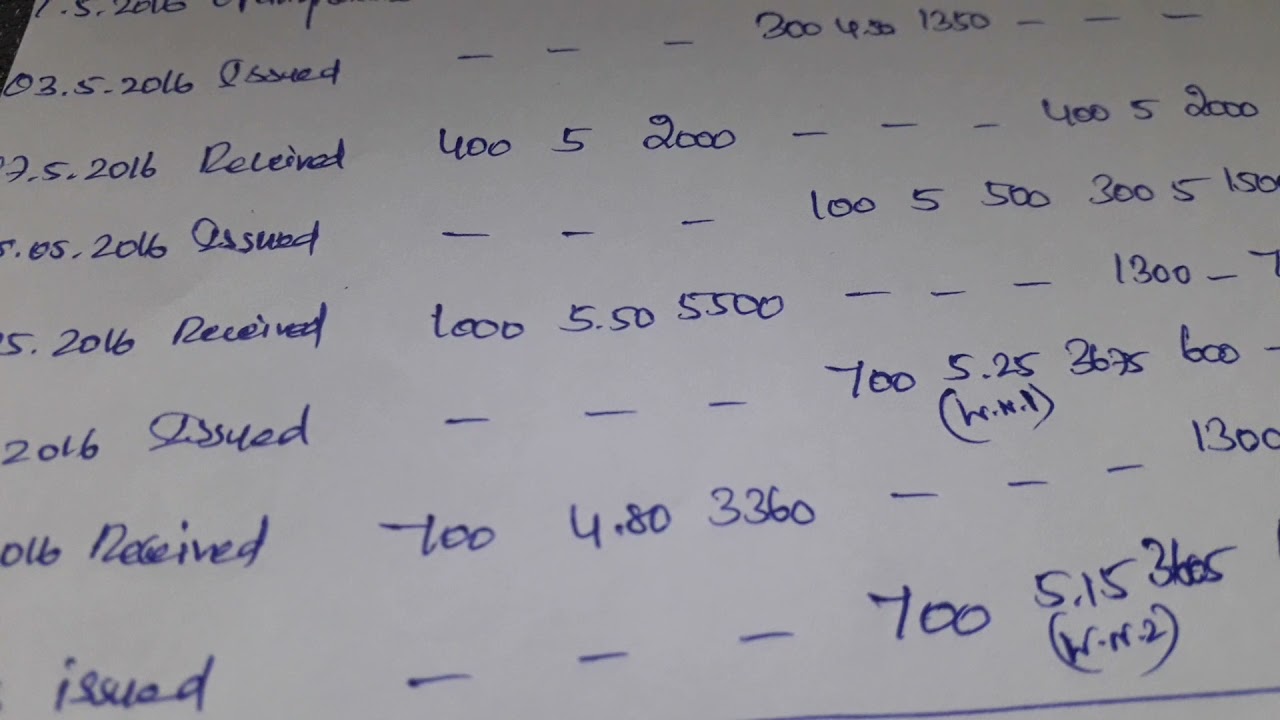 .5.2016
03.5.2016 Issued — — — 300 4.50 1350 — — —
7.5.2016 Received 400 5 2000 — — — 400 5 2000
5.05.2016 Issued — — — 100 5 500 300 5 150
5.2016 Received 1000 5.50 5500 — — — 1300 —
2016 Issued — — — 700 5.25 3675 600 —
(W.N.1)
016 Received 700 4.80 3360 — — — 1300
issued — — — 700 5.15 3605
(W.N.2)